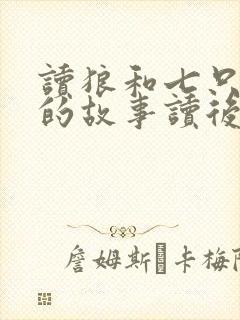 讀狼和七只
的故事讀後
詹姆斯·卡梅隆